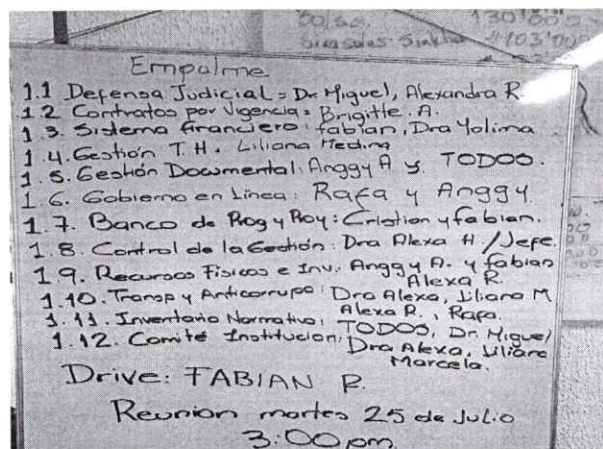 130'000
Girasoles Sinkha 4103'000
Empalme
1.1 Defensa Judicial = Dr. Miguel, Alexandra R.
1.2 Contratos por Vigencia = Brigitte. A.
1.3. Sistema financiero: fabian, Dra Yolima
1.4. Gestión T.H. Liliana Medina
1.5. Gestión Documental: Anggy A y TODOS.
1.6. Gobierno en Linea: Rafa y Anggy
1.7. Banco de Prog y Proy: Cristian y fabian.
1.8 Control de la Gestión: Dra Alexa H / Jefe.
1.9. Recursos Fisicos e Inv: Anggy A. y fabian
Alexa R.
1.10. Transp y Anticorrupc: Dra Alexa, Liliana M
Alexa R., Rafa.
1.11. Inventario Normativo: TODOS, Dr. Miguel
1.12. Comité Institucion: Dra Alexa, Liliana
Marcela.
Drive: FABIAN R.
Reunion martes 25 de Julio
3:00 pm